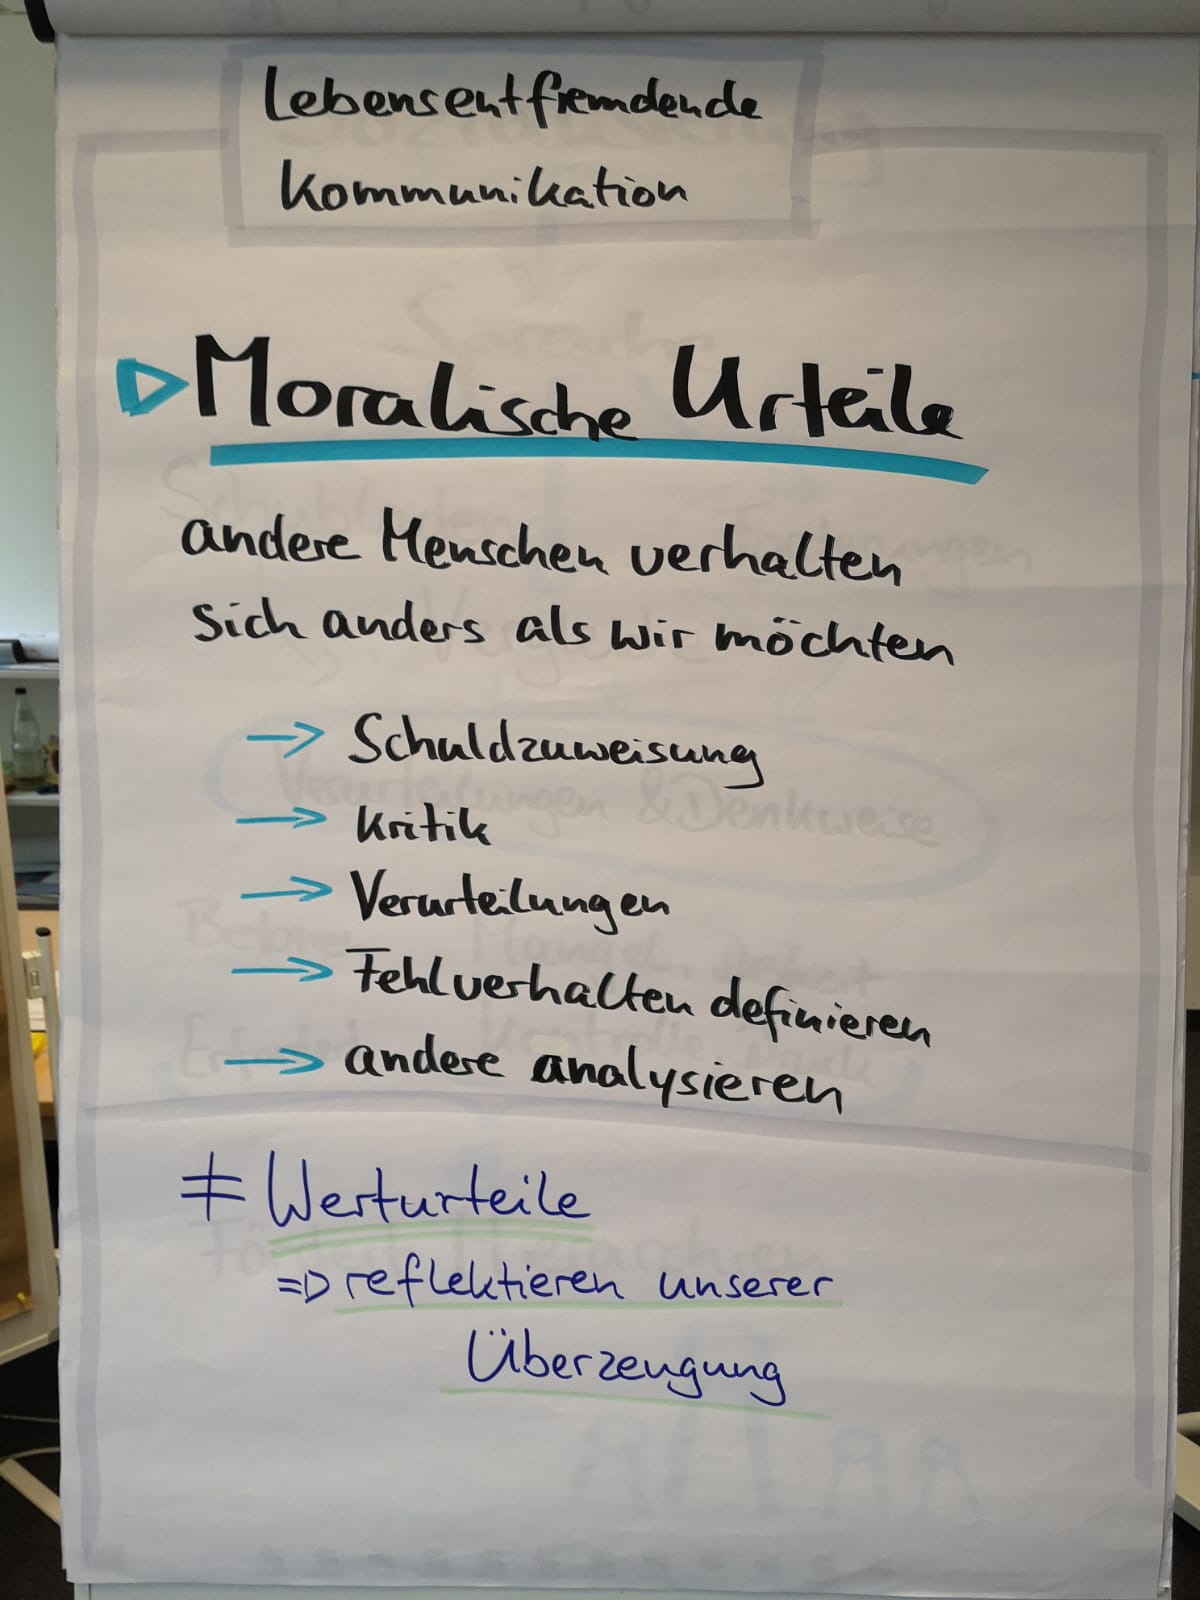 Lebensentfremdende
Kommunikation
Moralische Urteile
andere Menschen verhalten
sich anders als wir möchten
→ Schuldzuweisung
→ Kritik
→ Verurteilungen
→ Fehlverhalten definieren
→ andere analysieren
≠ Werturteile
⇒ reflektieren unserer
Überzeugung